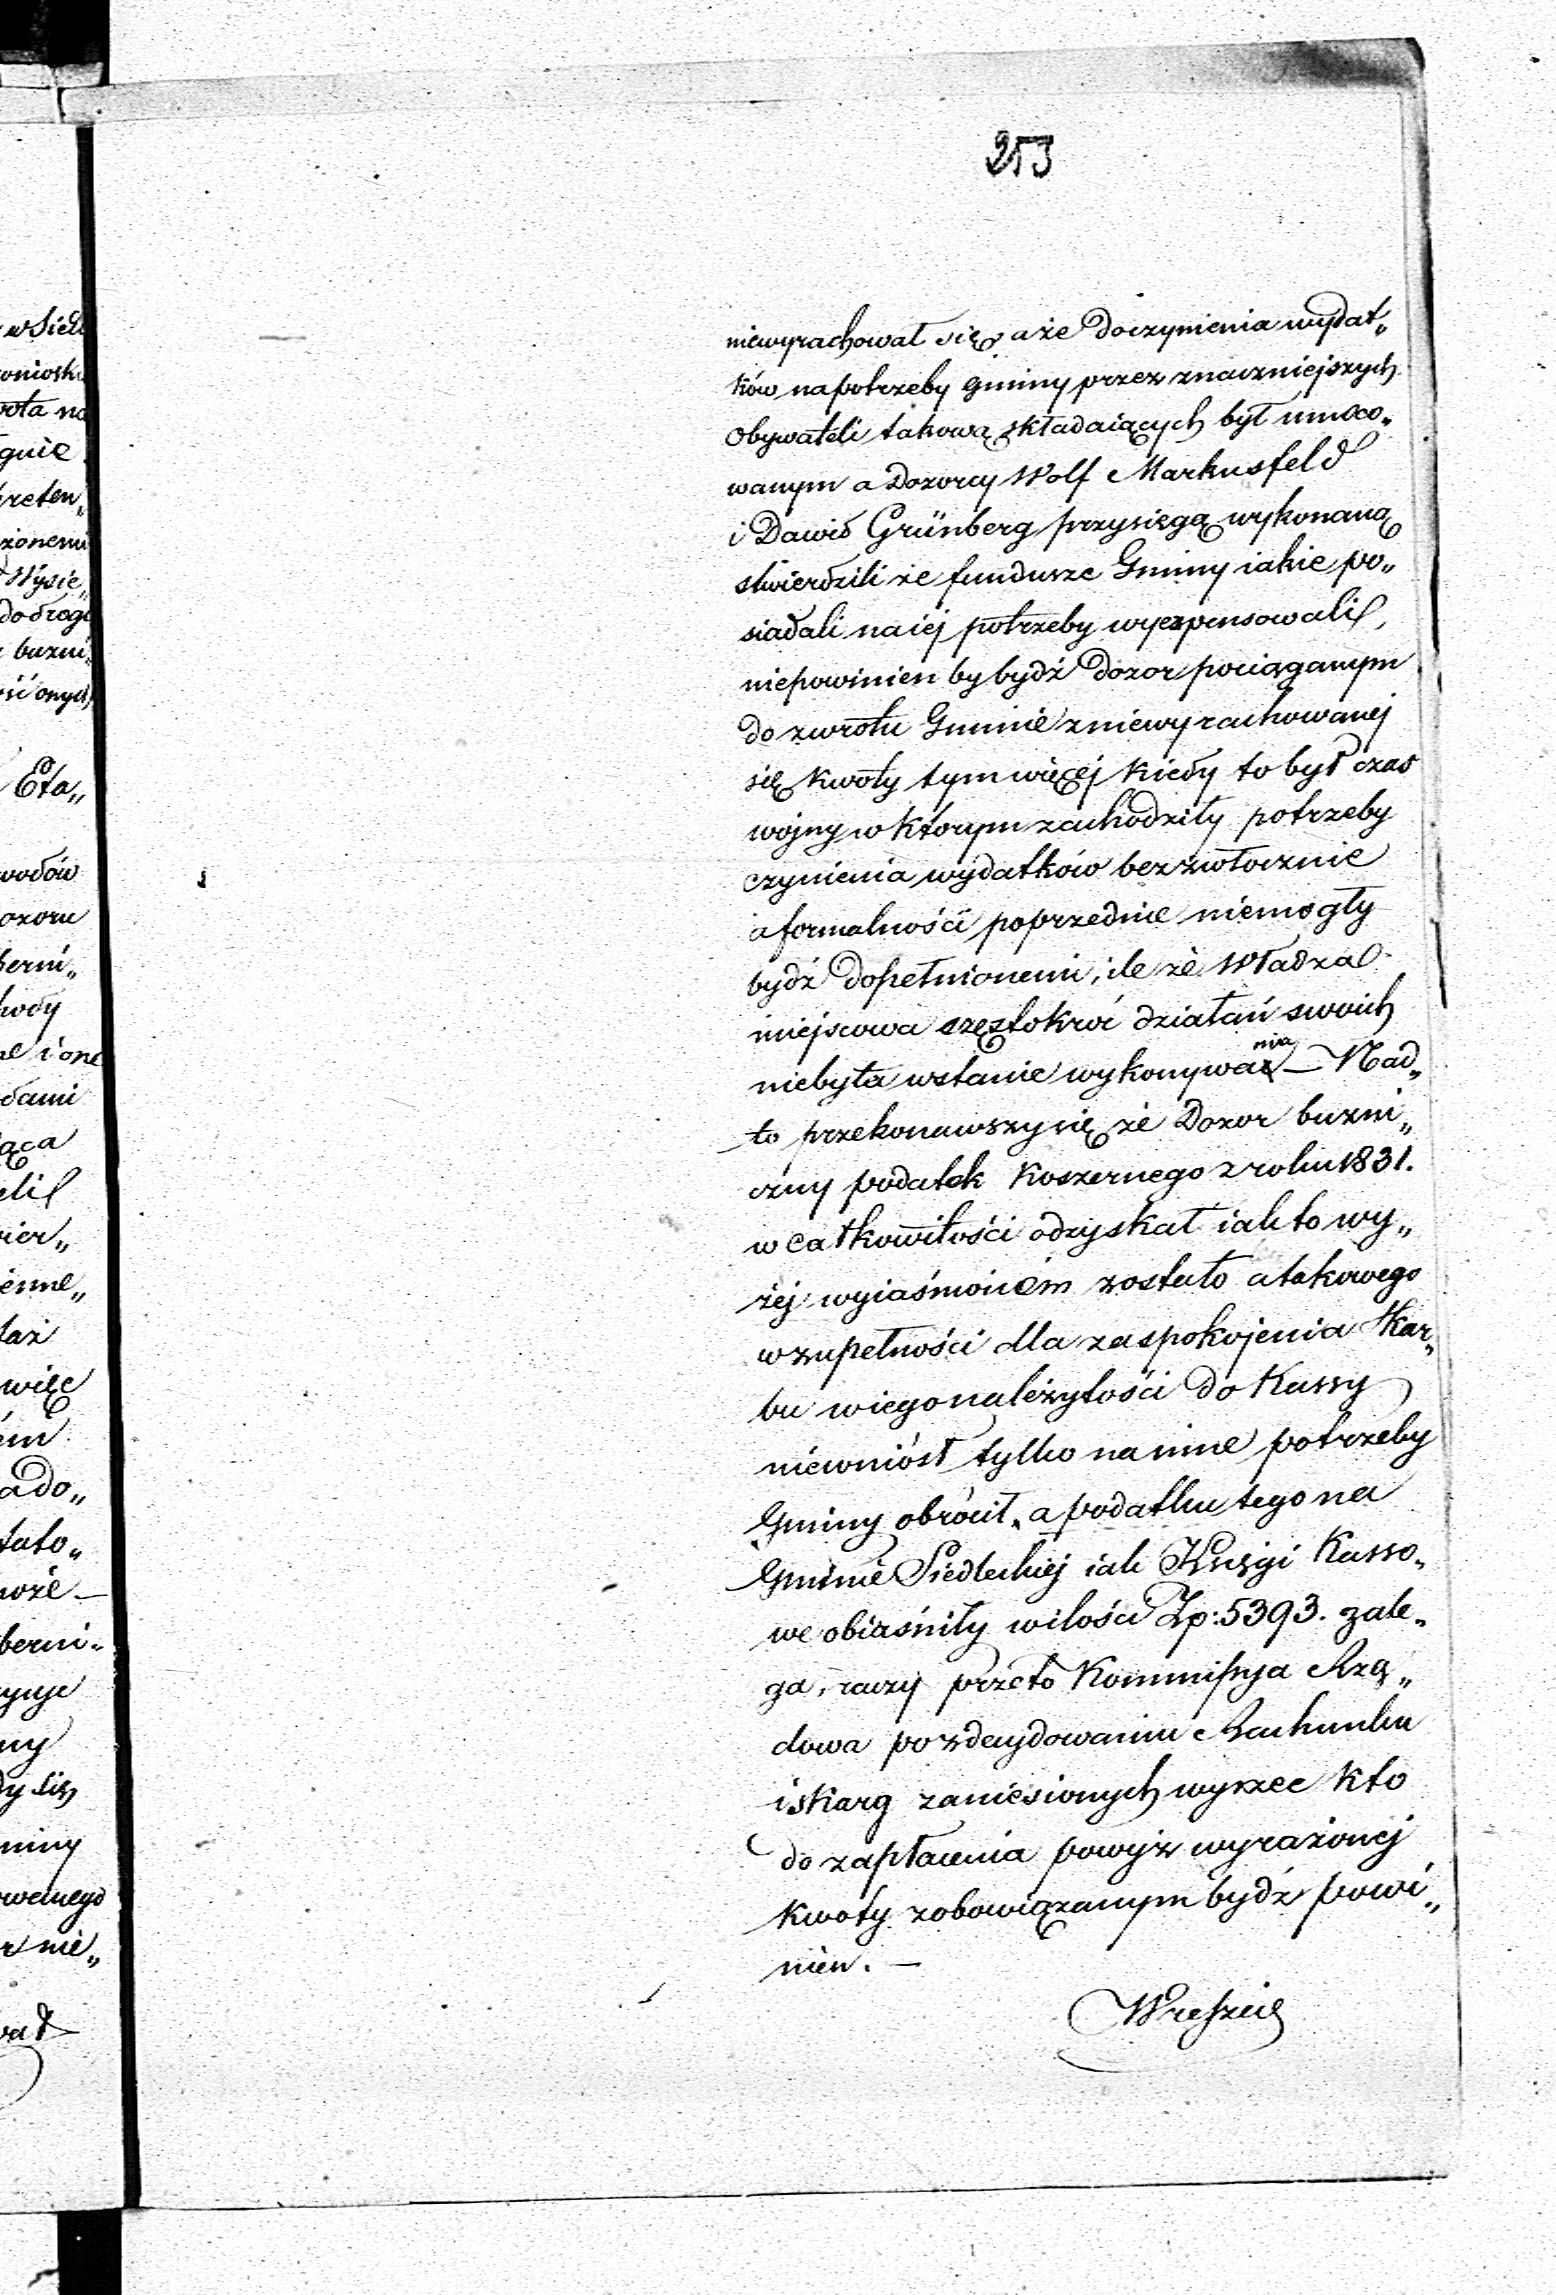 253
niewyrachował się, a że do czynienia wydat„
ków na potrzeby gminy przez znaczniejszych
Obywateli takową składaiących był umoco„
wanym a Dozorcy Wolf Markusfeld
i Dawid Grünberg przysięgą wykonaną
stwierdzili że fundusze Gminy iakie po„
siadali na iéj potrzeby wyexpensowali,
niepowinien by bydź Dozor pociąganym
do zwrotu Gminie z niewyrachowanéj
się kwoty tym więcéj kiedy to był czas
wojny w którym zachodziły potrzeby
czynienia wydatków bezzwłocznie
a formalności poprzednie niemogły
bydź dopełnionemi, ile że Władza
miejscowa częstokroć działań swoich
niebyła wstanie wykonywania — Nad„
to przekonawszy się że Dozor bużni„
czny podatek Koszernego z roku 1831.
w całkowitości odzyskał iak to wy„
żéj wyiaśnioném zostało a takowego
w zupełności dla zaspokojenia Skar„
bu w iego należytości do Kassy
niewniósł tylko na inne potrzeby
Gminy obrócił, a podatku tego na
Gminie Siedleckiéj iak Księgi Kasso„
we obiaśniły w ilości Zp: 5393. zale„
ga, raczy przeto Kommissya Rzą„
dowa po zdecydowaniu Rachunku
i skarg zaniesionych wyrzec kto
do zapłacenia powyż wyrażonéj
kwoty zobowiązanym bydź powi„
nien. —
Wreszcie
w Siedl
wota na
gnie
preten„
żonemu
Wysie„
do drogi
bużni„
ość onych
Eta„
wodów
ozoru
wody
ne i one
dami
ąca
wier„
taż
więc
ém
ado„
tato„
może —
berni„
ny
dy się
miny
r nie„